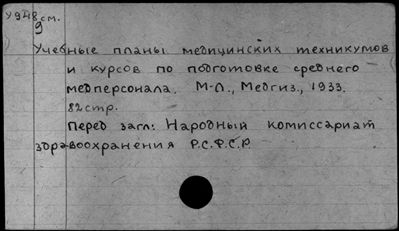 У948см.
9
Учебные планы медицинских техникумов
и курсов по подготовке среднего
медперсонала. М-Л., Медгиз., 1933.
82стр.
Перед загл: Народный комиссариат
здравоохранения Р.С.Ф.С.Р.